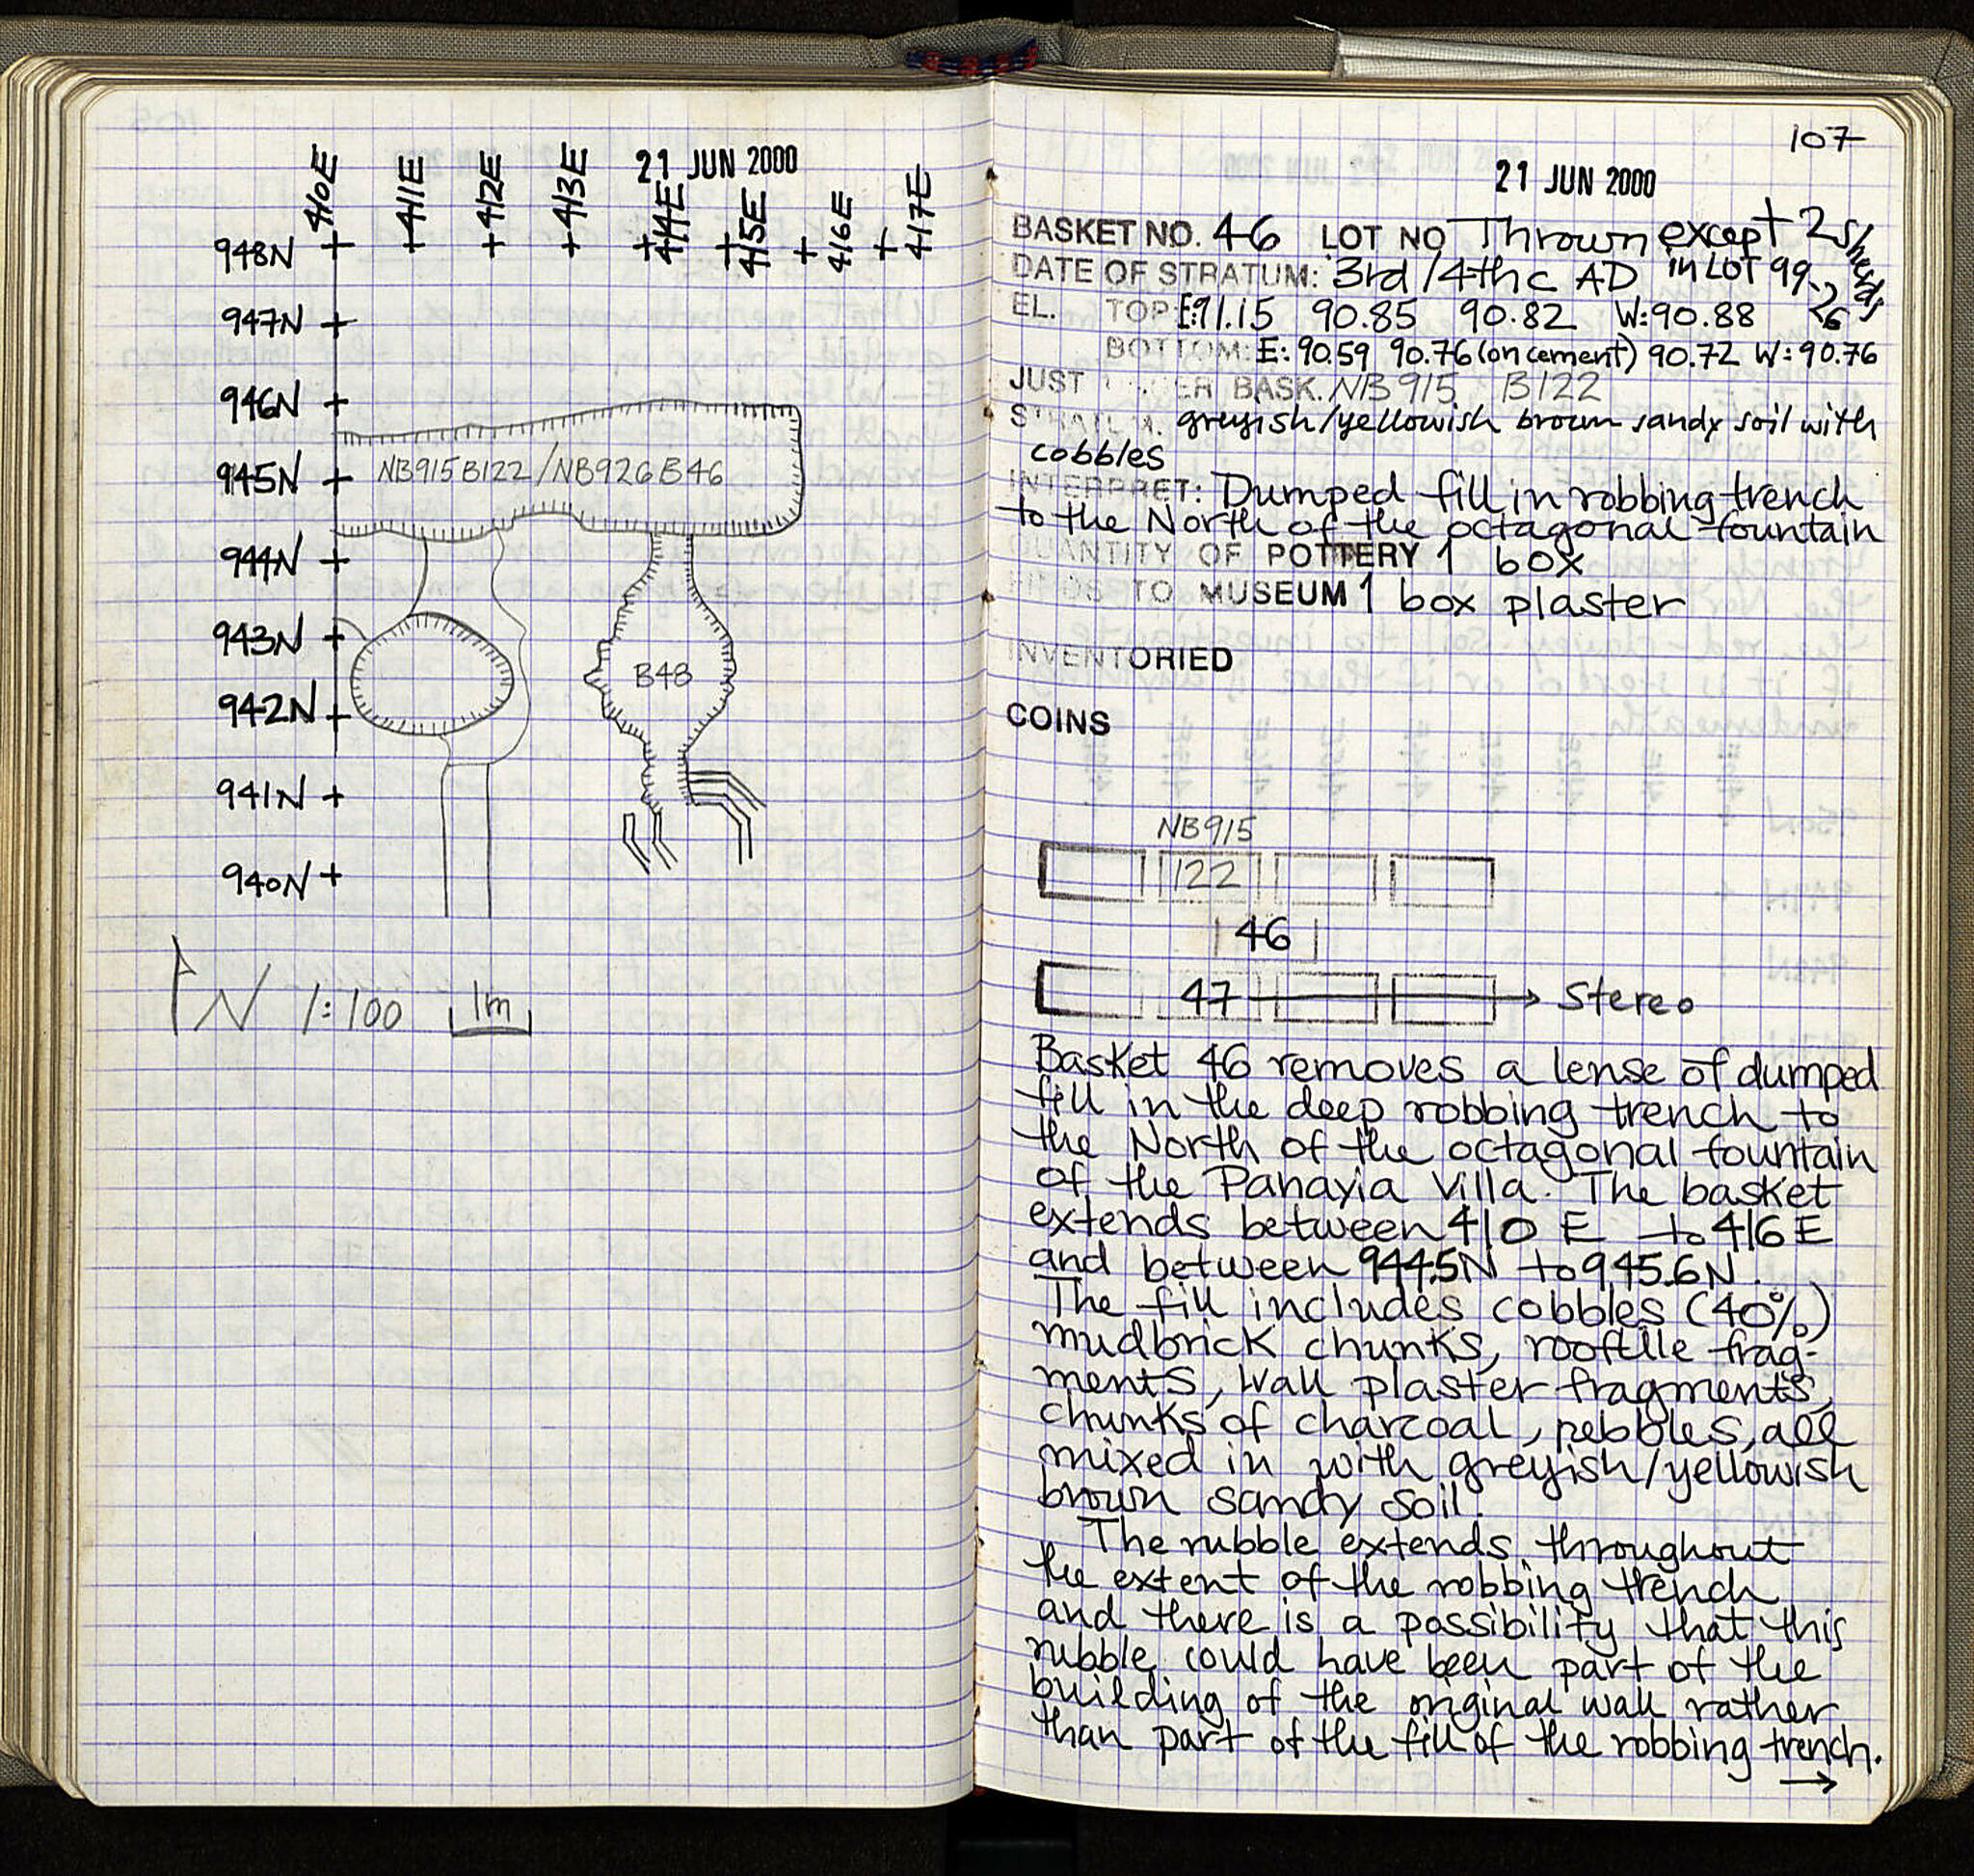 21 JUN 2000
410E 411E 412E 413E 414E 415E 416E 417E
948N
947N
946N
945N NB915 B122/NB926 B46
944N
943N
B48
942N
941N
940N
N 1:100 1m
107
21 JUN 2000
BASKET NO. 46 LOT NO Thrown except 2 sherds
DATE OF STRATUM: 3rd/4th c AD in LOT 99-26
EL. TOP: E:91.15 90.85 90.82 W:90.88
BOTTOM: E: 90.59 90.76 (on cement) 90.72 W: 90.76
JUST UNDER BASK. NB915 B122
STRATUM. greyish/yellowish brown sandy soil with
cobbles
INTERPRET: Dumped fill in robbing trench
to the North of the octagonal fountain
QUANTITY OF POTTERY 1 box
FINDS TO MUSEUM 1 box plaster
INVENTORIED
COINS
NB915
122
46
47 → Stereo
Basket 46 removes a lense of dumped
fill in the deep robbing trench to
the North of the octagonal fountain
of the Panayia Villa. The basket
extends between 410 E to 416 E
and between 944.5N to 945.6N.
The fill includes cobbles (40%)
mudbrick chunks, rooftile frag-
ments, wall plaster fragments,
chunks of charcoal, pebbles, all
mixed in with greyish/yellowish
brown sandy soil.
The rubble extends throughout
the extent of the robbing trench
and there is a possibility that this
rubble could have been part of the
building of the original wall rather
than part of the fill of the robbing trench.
→